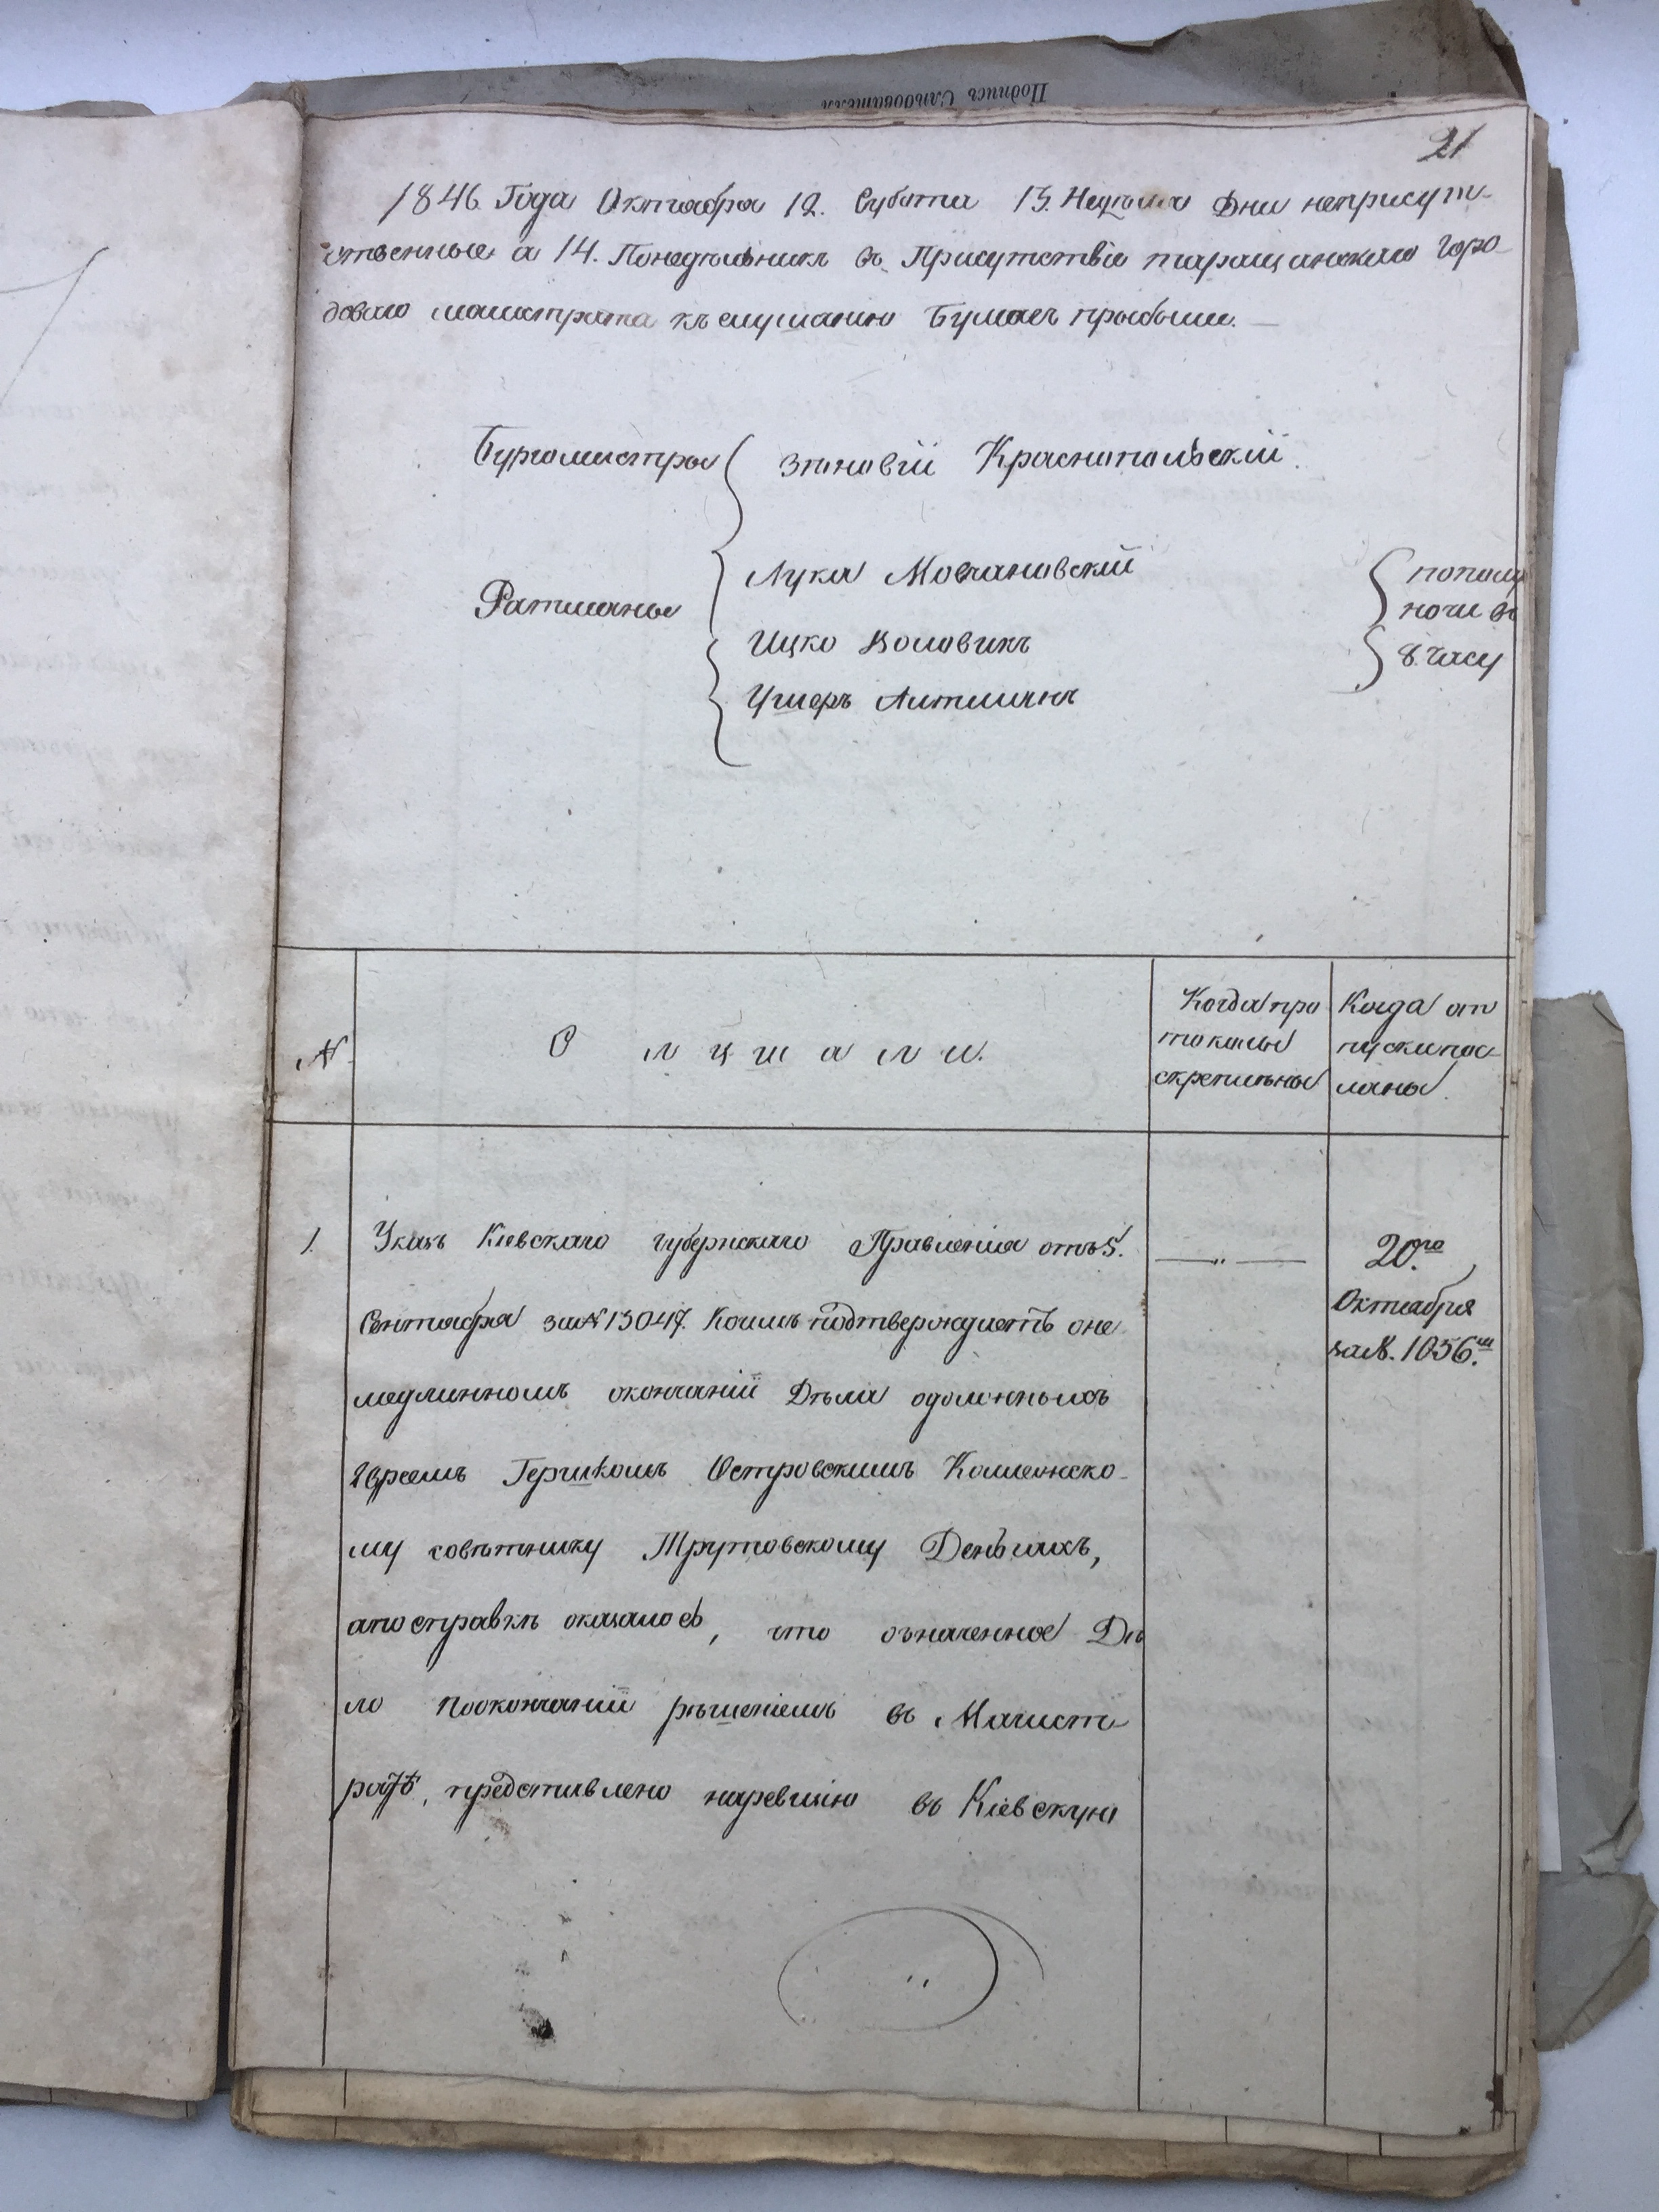 Подпись Слѣдователя
21
1846 Года Октября 12. Субота 13. Неделя Дни неприсут-
ственные а 14. Понедѣльникъ въ Присутствіе таращанскаго горо-
доваго магистрата къ слушанію бумагъ прибыли.
Бургомистры Зѣновій Краснопольскій.
Ратманы
Лука Мовчановскій
Ицко Воловикъ
Ушеръ Литманъ
пополу
ночи въ
8. часу
№
С л у ш а л и.
Когда про
токолы
скрепленны
Когда от
пуски пос-
ланы.
1. Указъ Кіевскаго губернскаго Правленія отъ 5.
Сентября за № 13047. Коимъ подтверждаетъ оне
медленномъ окончаніи Дѣла одолженныхъ
Евреемъ Гершкомъ Островскимъ Колежско-
му совѣтнику Трутовскому Деньгахъ,
апосправкѣ оказалось, что означенное Дѣ
ло поокончаніи рѣшеніемъ въ Магист-
ратѣ, представлено наревизію въ Кіевскую
— „ —
20го
Октября
за №. 1056.м